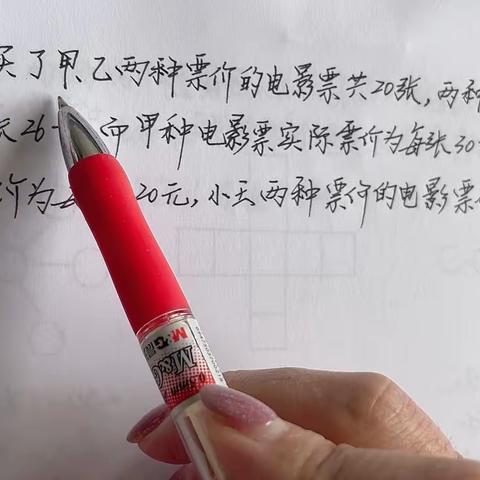 买了甲、乙两种票价的电影票共20张,两种
26 而甲种电影票实际票价为每张30
价为 20元,小王两种票价的电影票
M&G
M&G
0.5mm